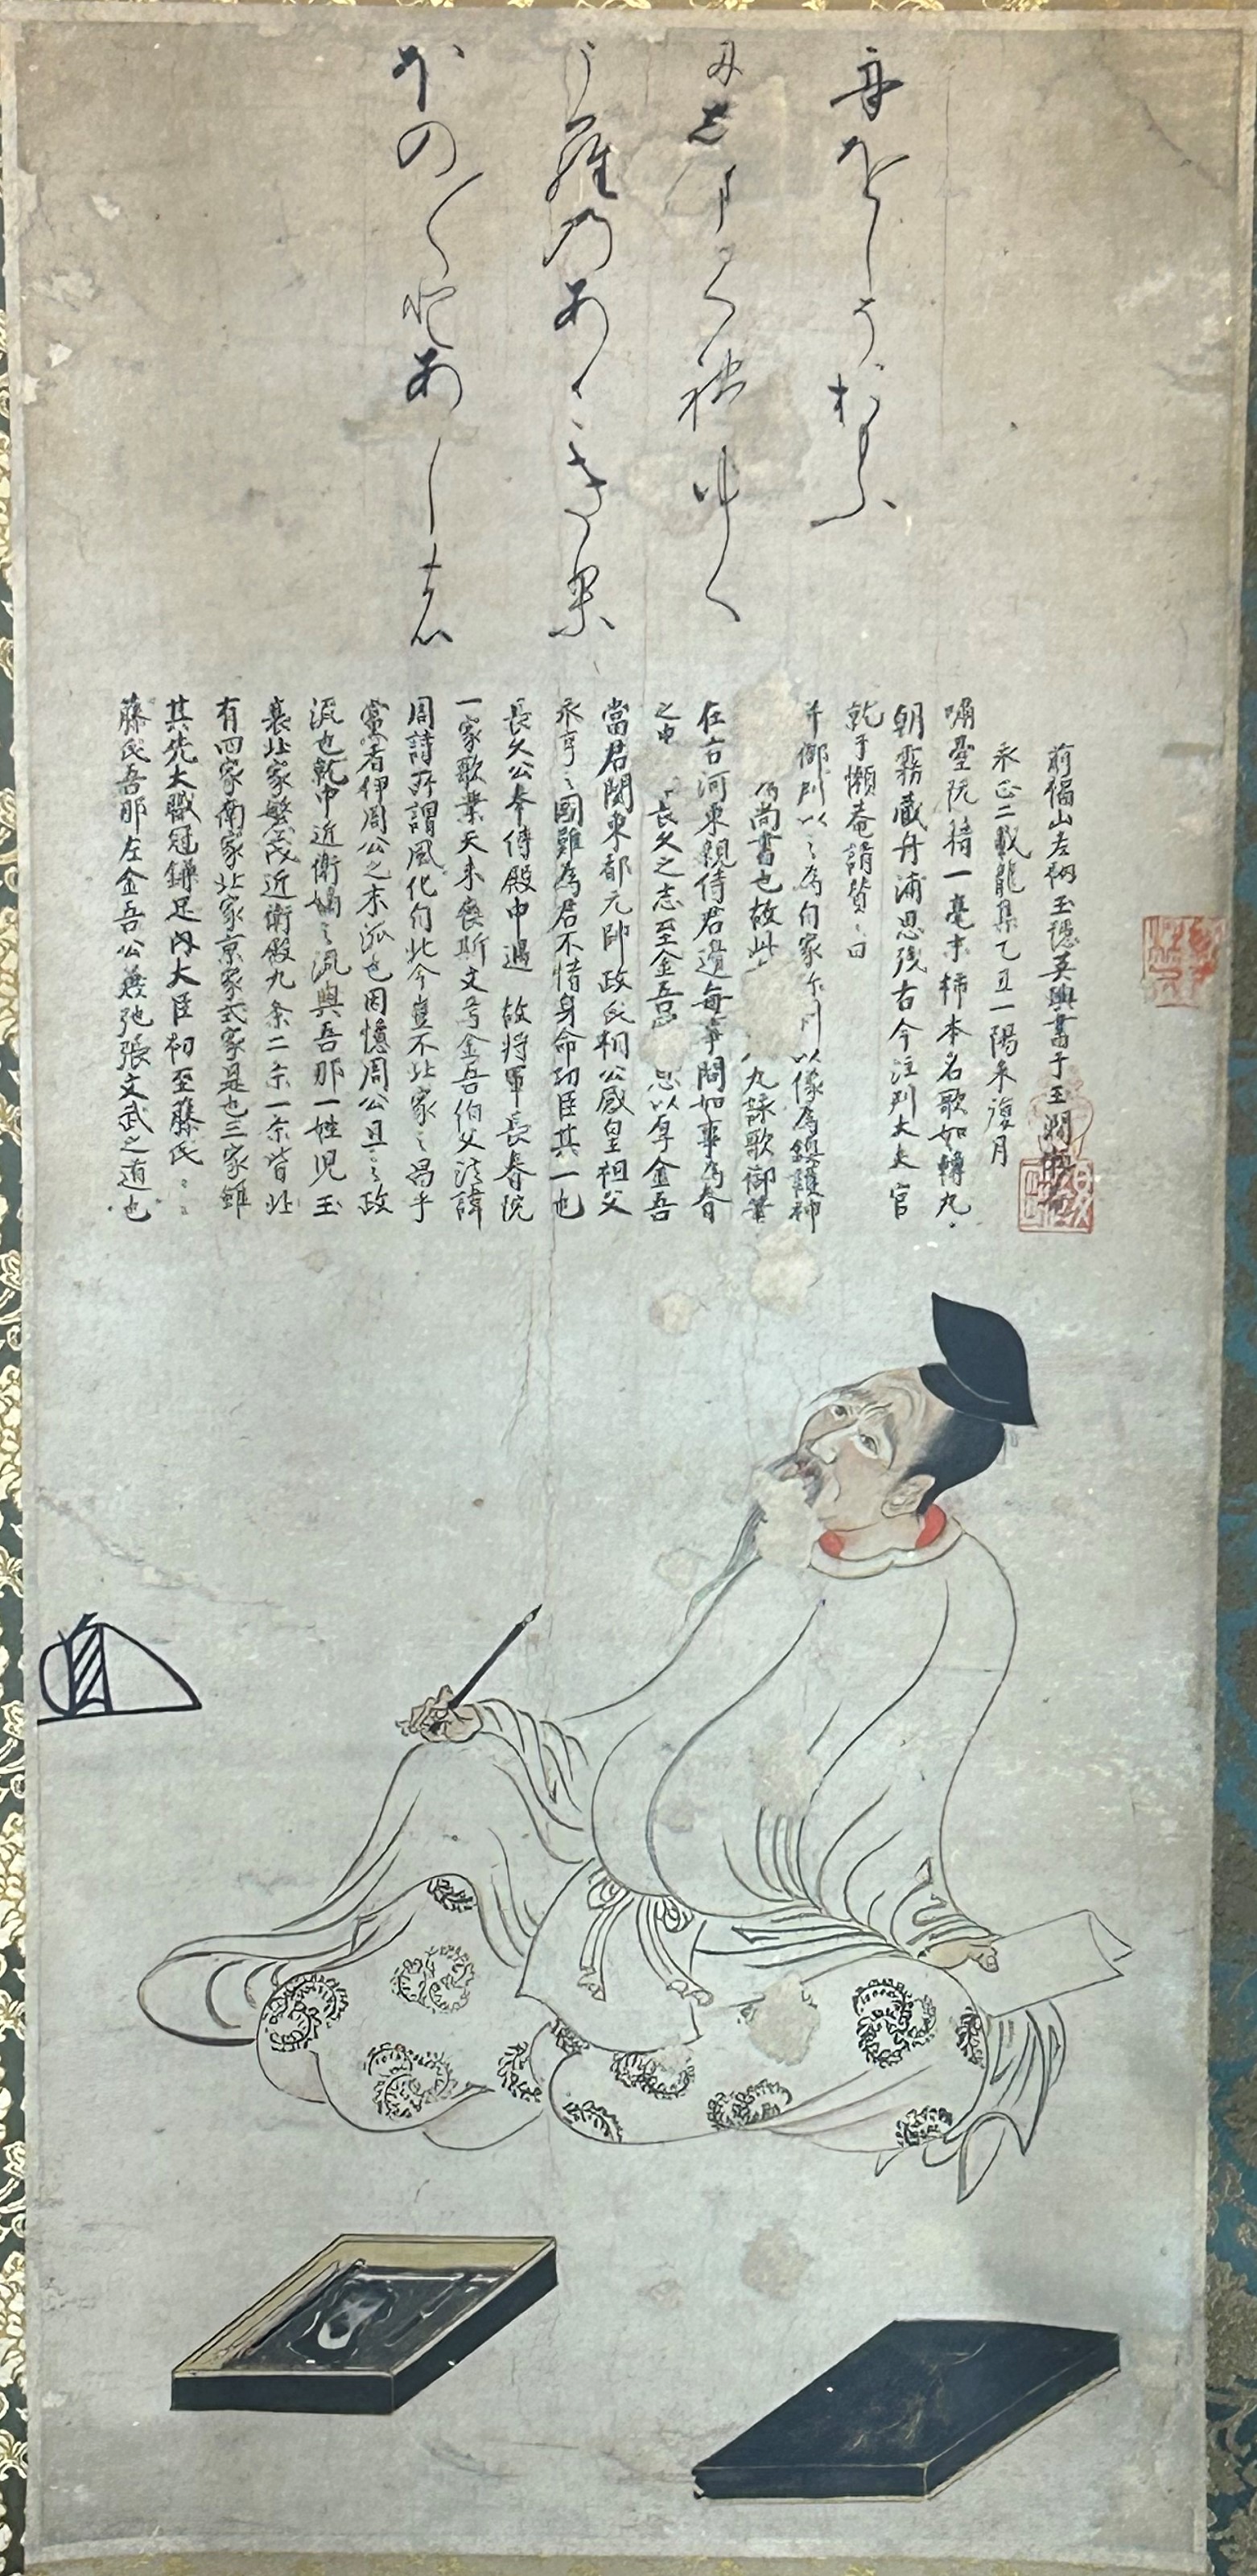 ほの〱とあかし能
う羅乃あさき梨
尓志まかく禮ゆく
舟をしうおもふ
藤氏吾那左金吾公兼弛張文武之道也
其先大職冠鎌足内大臣初至藤氏〻
有四家南家北家京家式家是也三家雖
衰北家繁茂近衛殿九条二条一条皆北
流也就中近衛嫡〻流與吾那一姓児玉
党者伊周公之末流也因憶周公旦之政
周詩所謂風化自北今豈不北家之昌乎
一家歌業天未喪斯文焉金吾伯父法諱
長久公奉侍殿中過 故将軍長春院
永亨〻國難為君不惜身命功臣其一也
當君関東都元帥政氏相公感皇祖父
之忠 長久之志至金吾 忠以厚金吾
在古河東親侍君邊毎事問如事為春
尚書也故此 九詠歌御筆
并御判以〻為自家 以像為鎮護神
就于懶菴請賛〻曰
朝霧蔵舟浦思残古今注列大夫官
阮籍一毫末柿本名歌如轉丸
永正二載龍集乙丑一陽来復月
前福山老衲玉隠英璵書于玉澗